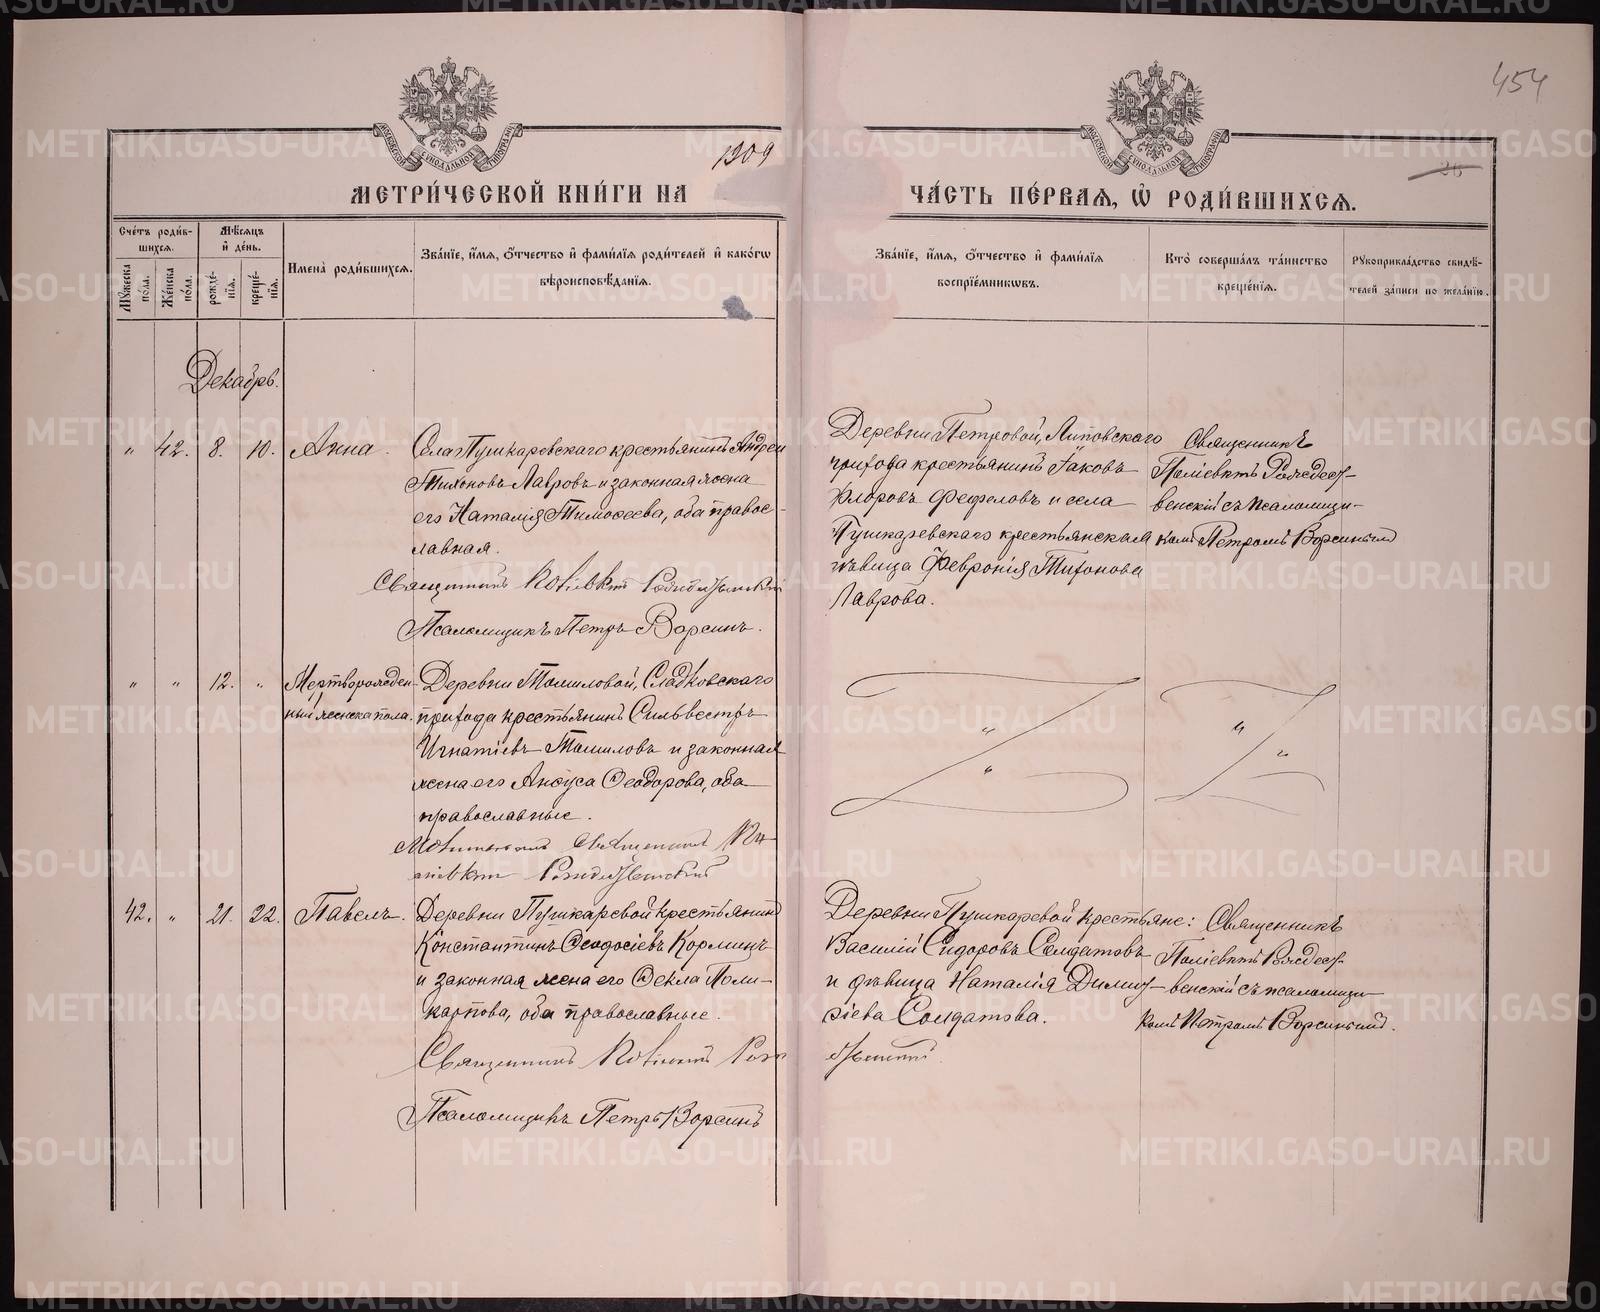 454
1909
26
МЕТРИ́ЧЕСКОЙ КНИ́ГИ НА
ЧА́СТЬ ПЕ́РВАЯ, Ѡ҆ РОДИ́ВШИХСЯ.
Сче́тъ роди́в-
шихся.
Мѣ́сяцъ
и҆ де́нь.
Му́жеска
по́ла.
Же́нска
по́ла.
рожде́-
нїя.
креще́-
нїя.
И҆мена̀ роди́вшихся.
Зва́нїе, и҆́мя, ѻ҆́тчество и҆ фами́лїя роди́телей и҆ како́гѡ
вѣроисповѣ́данїя.
Зва́нїе, и҆́мя, ѻ҆́тчество и҆ фами́лїя
воспрїе́мникѡвъ.
Кто̀ соверша́лъ та́инство
креще́нїя.
Рꙋкоприкла́дство свидѣ́-
телей за́писи по жела́нїю.
Декабрь.
" 42. 8. 10. Анна.
Села Пушкаревскаго крестьянинъ Андрей
Тихоновъ Лавровъ и законная жена
его Наталія Тимоѳеева, оба правос-
лавная.
Священникъ Поліевктъ Рождественскій
Псаломщикъ Петръ Ворсинъ.
Деревни Петровой, Липовскаго
прихода крестьянинъ Іаковъ
Флоровъ Фефеловъ и села
Пушкаревскаго крестьянская
дѣвица Февронія Тихонова
Лаврова.
Священникъ
Поліевктъ Рождест-
венскій съ псаломщи-
комъ Петромъ Ворсинымъ
" " 12. " Мертворожден-
ный женска пола.
Деревни Томиловой, Сладковскаго
прихода крестьянинъ Сильвестръ
Игнатіевъ Томиловъ и законная
жена его Анѳуса Ѳеодорова, оба
православные.
Молитвовалъ священникъ По-
ліевктъ Рождественскій
" "
" "
42. " 21. 22. Павелъ.
Деревни Пушкаревой крестьянинъ
Константинъ Ѳеодосіевъ Корминъ
и законная жена его Ѳекла Поли-
карпова, оба православные.
Священникъ Поліевктъ Рож
дественскій.
Псаломщикъ Петръ Ворсинъ
Деревни Пушкаревой крестьяне:
Василій Сидоровъ Солдатовъ
и дѣвица Наталія Димит-
ріева Солдатова.
Священникъ
Поліевктъ Рождест-
венскій съ псаломщи-
комъ Петромъ Ворсинымъ.
METRIKI.GASO-URAL.RU